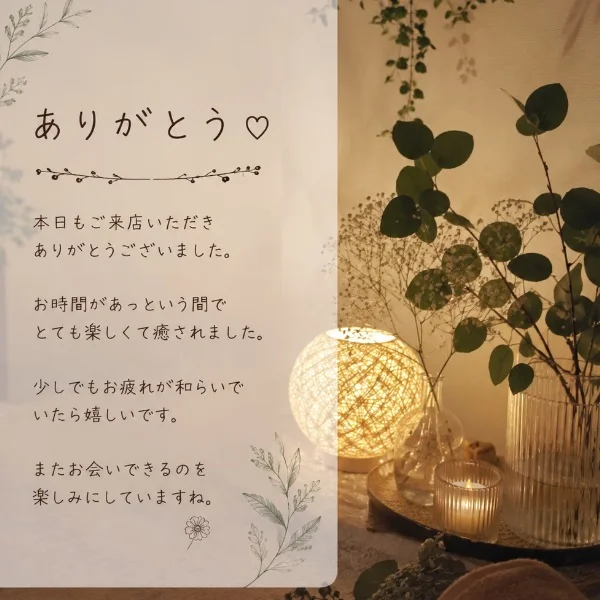 ありがとう♡
本日もご来店いただき
ありがとうございました。
お時間があっという間で
とても楽しくて癒されました。
少しでもお疲れが和らいで
いたら嬉しいです。
またお会いできるのを
楽しみにしていますね。